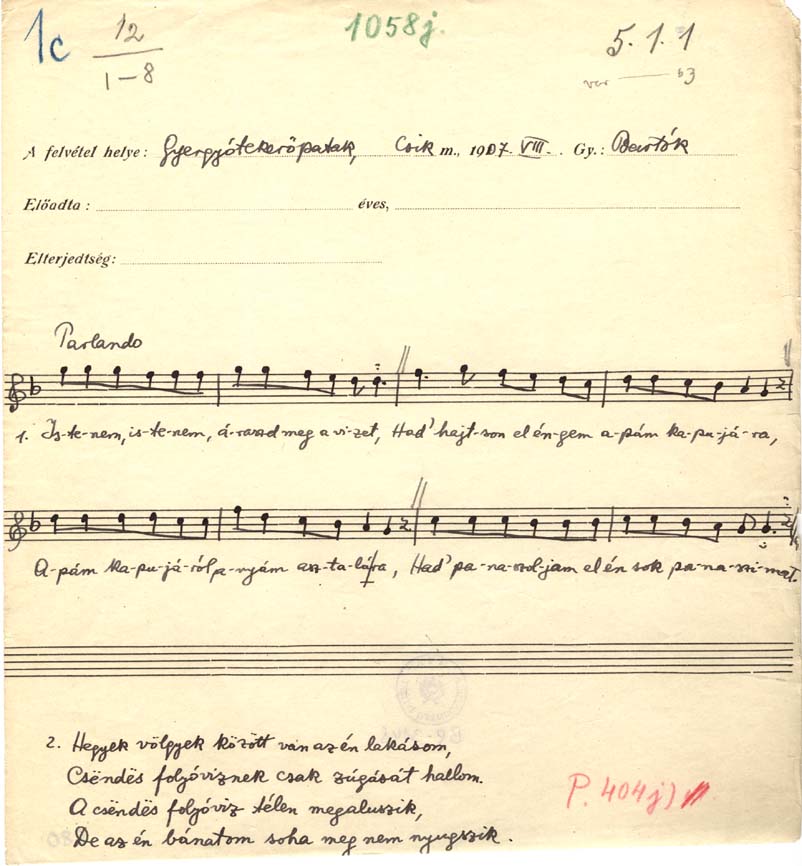 1c 12/1-8 1058j. 5.1.1
var 53
A felvétel helye: Gyergyótekerőpatak, Csik m., 1907. VIII. Gy.: Bartók
Előadta: éves,
Elterjedtség:
Parlando
1. Is-te-nem, is-te-nem, á-raszd meg a vi-zet, Had' hajt-son el én-gem a-pám ka-pu-já-ra,
A-pám ka-pu-já-ról a-nyám asz-ta-lára, Had' pa-na-szol-jam el én sok pa-na-szi-mat.
2. Hegyek völgyek között van az én lakásom,
Csëndës foljóviznek csak zúgását hallom.
A csëndës foljóviz télen megaluszik,
De az én bánatom soha meg nem nyugszik.
P. 404j)